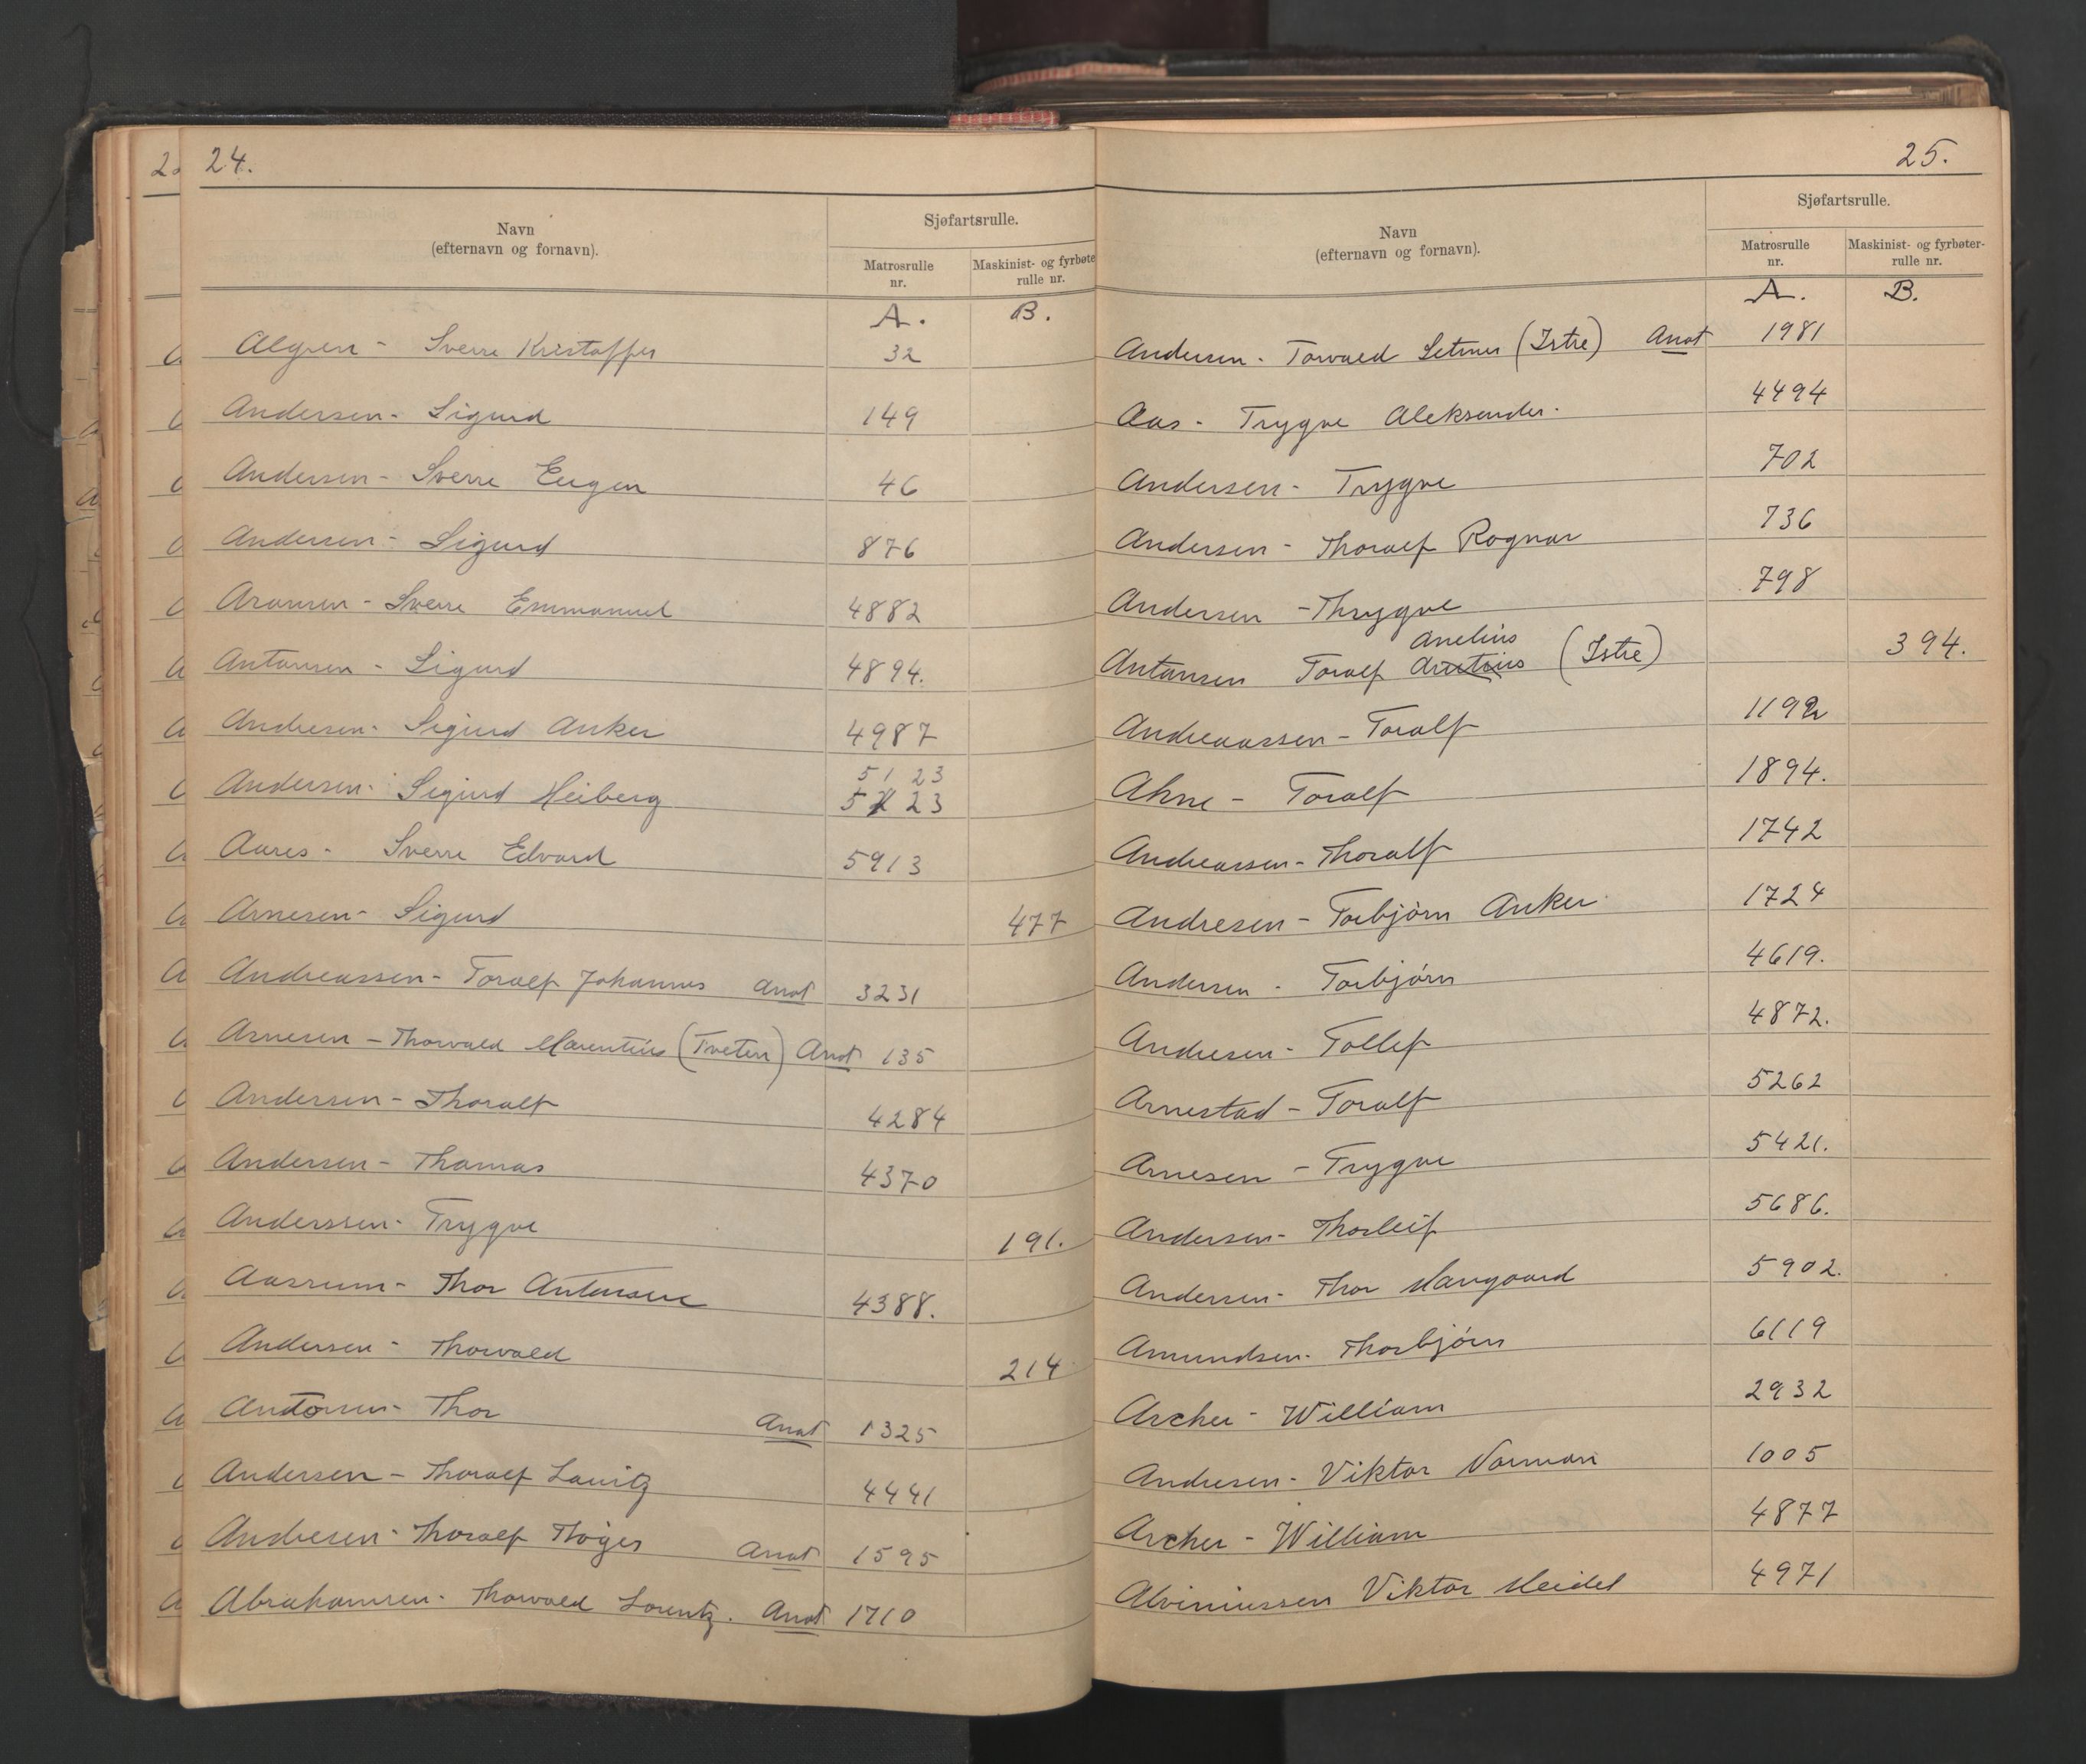 24.
Navn
(efternavn og fornavn).
Sjøfartsrulle.
Matrosrulle
nr.
Maskinist- og fyrbøte
rulle nr.
A. B.
Algren - Sverre Kristoffer 32
Andersen - Sigurd 149
Andersen - Sverre Eugen 46
Andersen - Sigurd 876
Aronsen - Sverre Emmanuel 4882
Antonsen - Sigurd 4894.
Andresen - Sigurd Anker 4987
5123
Andersen - Sigurd Heiberg 5223
Aares - Sverre Edvard 5913
Arnesen - Sigurd 477
Andreassen - Toralf Johannes Anot 3231
Arnesen - Thorvald Marentius (Tveten) Anot 135
Andersen - Thoralf 4284
Andersen - Thomas 4370
Anderssen - Trygve 191.
Aasrum - Thor Antonsen 4388.
Andersen - Thorvald 214
Antonsen - Thor Anot 1325
Andersen - Thoralf Lauitz 4441
Andresen - Thoralf Thøger Anot 1595
Abrahamsen - Thorvald Lorentz. Anot 1710
25.
Navn
(efternavn og fornavn).
Sjøfartsrulle.
Matrosrulle
nr.
Maskinist- og fyrbøter-
rulle nr.
A. B.
Andersen - Torvald (Istre) Anot 1981
Aas - Trygve Aleksander. 4494
Andersen - Trygve 702
Andersen - Thoralf Ragnar 736
Andersen - Thrygve 798
Anelius
Antonsen Toralf (Istre) 394.
Andreaassen - Toralf 1192
Ahne - Toralf 1894.
Andreassen - Thoralf 1742
Andresen - Torbjörn Anker 1724
Andersen - Torbjörn 4619.
Andresen - Tollef 4872.
Arnestad - Toralf 5262
Arnesen - Trygve 5421.
Andersen - Thorleif 5686.
Andersen - Thor Haugaard 5902.
Amundsen - Thorbjörn 6119
Archer - William 2932
Andresen - Viktor Norman 1005
Archer - William 4877
Alviniussen Viktor Heidel 4971